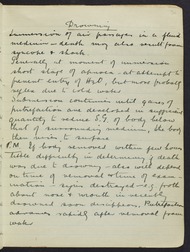 Drowning
Immersion of air passages in a fluid
medium – death may also result from
syncope & shock
Generally at moment of immersion
short stage of apnoea – at attempt to
prevent entry of H2O, but most probably
reflex due to cold water
Submersion continues until gases of
putrefaction are developed in sufficient
quantity to reduce S.G. of body below
that of surrounding medium, the body
then rises to surface
P.M. If body removed within few hours
little difficulty in determining if death
was due to drowning – also will depend
on time of removal & time of exam
ination as signs destroyed e.g. froth
about nose & mouth in recently
drowned soon disappears, Putrefaction
advances rapidly after removal from
water